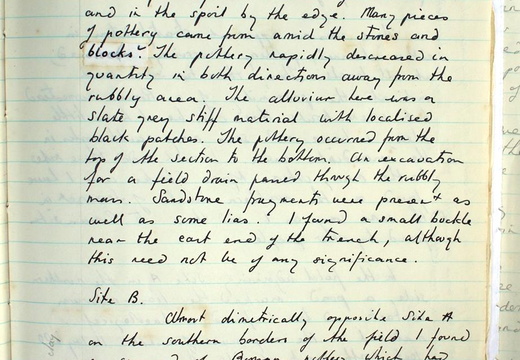 and in the spoil by the edge. Many pieces
of pottery came from amid the stones and
blocks. The pottery rapidly descreased in
quantity in both directions away from the
rubbly area. The alluvium here was a
slate grey stiff material with localised
black patches. The pottery occurred from the
top of the section to the bottom. An excavation
for a field drain passed through the rubbly
mass. Sandstone fragments were present as
well as some lias. I found a small buckle
near the east end of the trench, although
this need not be of any significance.
Site B.
Almost dimetrically opposite Site A
on the southern borders of the field I found